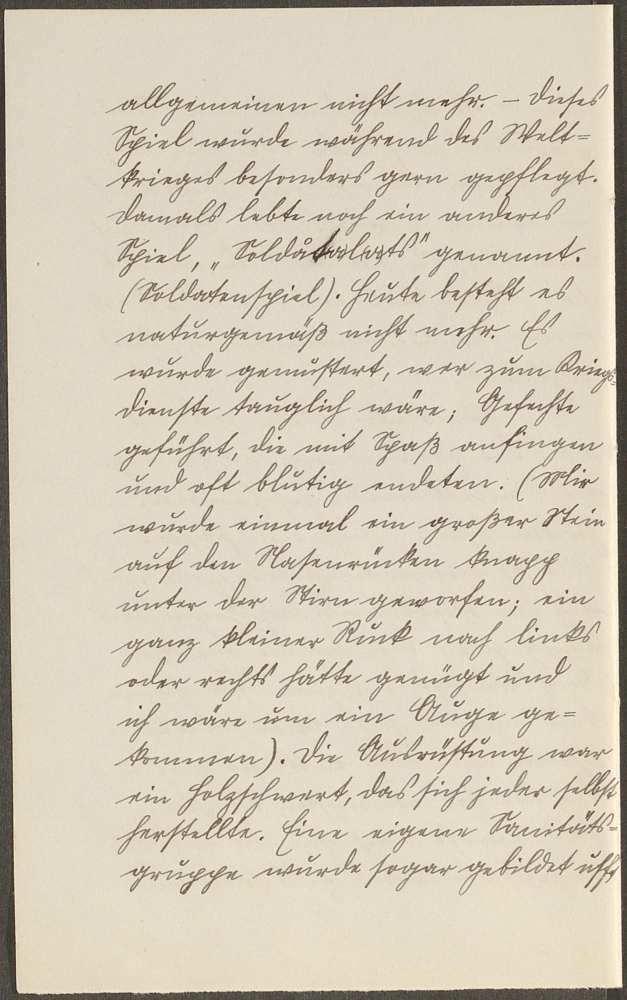 allgemeinen nicht mehr. – Dieses
Spiel wurde während des Welt=
krieges besonders gern gepflegt.
Damals lebte noch ein anderes
Spiel, „ genannt.
(Soldatenspiel). Heute besteht es
naturgemäß nicht mehr. Es
wurde gemustert, wer zum Kriegs=
dienste tauglich wäre; Gefechte
geführt, die mit Spaß anfingen
und oft blutig endeten. (Mir
wurde einmal ein großer Stein
auf den Nasenrücken knapp
unter der Stirn geworfen; ein
ganz kleiner Ruck nach links
oder rechts hätte genügt und
ich wäre um ein Auge ge=
kommen). Die Ausrüstung war
ein Holzschwert, das sich jeder selbst
herstellte. Eine eigene Sanitäts=
gruppe wurde sogar gebildet